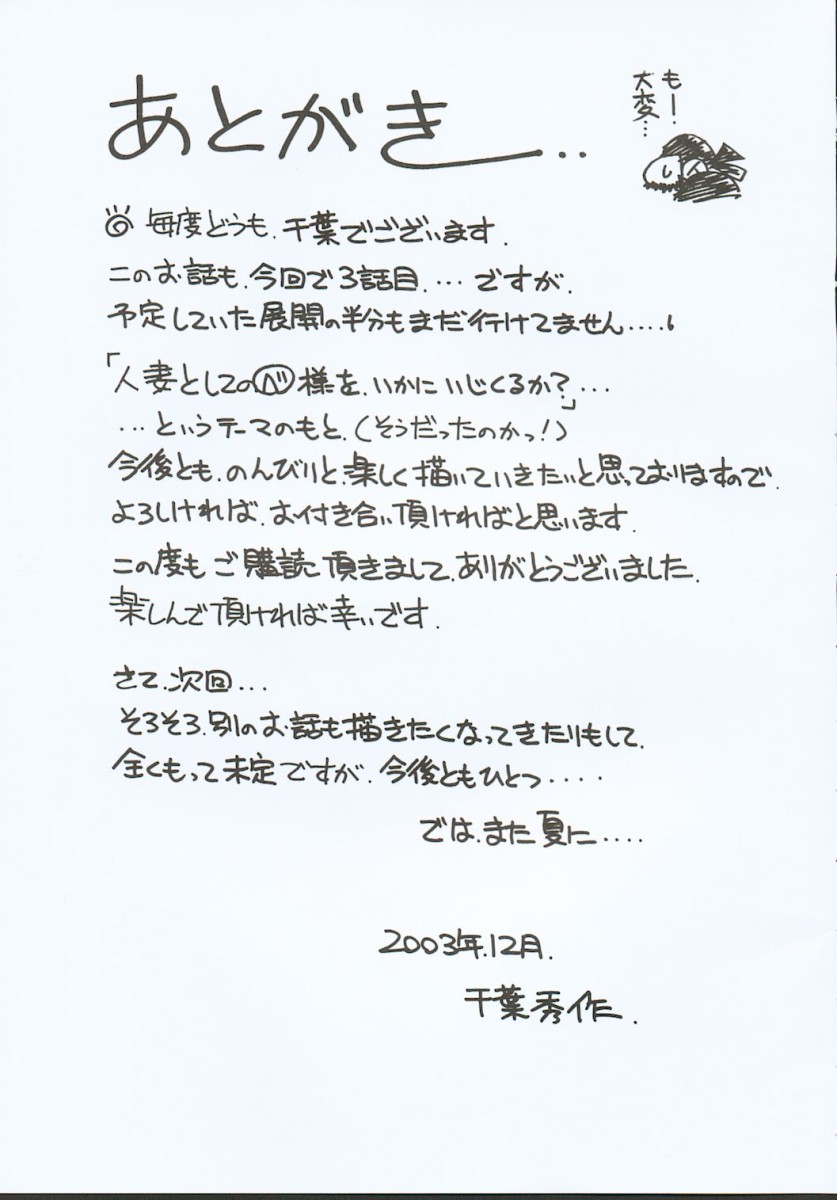 あとがき‥
もー！
大変…
◎ 毎度どうも、千葉でございます．
このお話も、今回で3話目．…ですが、
予定していた展開の半分もまだ行けてません‥‥。
「人妻としてのⓋ様を、いかにいじくるか？」…
…というテーマのもと、（そうだったのかっ！）
今後とも、のんびりと、楽しく描いていきたいと思っておりますので、
よろしければ、お付き合い頂ければと思います．
この度もご購読頂きまして、ありがとうございました．
楽しんで頂ければ幸いです．
さて、次回…
そろそろ、別のお話も描きたくなってきたりもして、
全くもって未定ですが、今後ともひとつ‥‥
では、また夏に‥‥
2003年、12月．
千葉秀作．